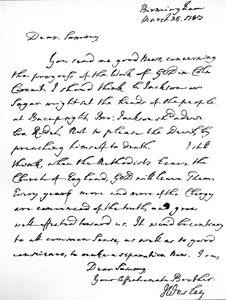 Birmingham
March 25, 1787
Dear Sammy
You send me good News, concerning
the progress of the Work of GOD in Coln
Circuit. I should think Bror Jackson or
Sagar might set the heads of the people
at Bacup right. Bror. Jackson should
Not to please the Devil, by
preaching himself to death. I still
think, when the Methodists leave the
Church of England, GOD will leave them.
Every year more and more of the Clergy
are convinced of the truth, and grow
well-affected toward us. It would be contrary
to all common Sense, as well as to good
conscience, to make a separation now. I am,
Dear Sammy
Your Affectionate Brother
J Wesley